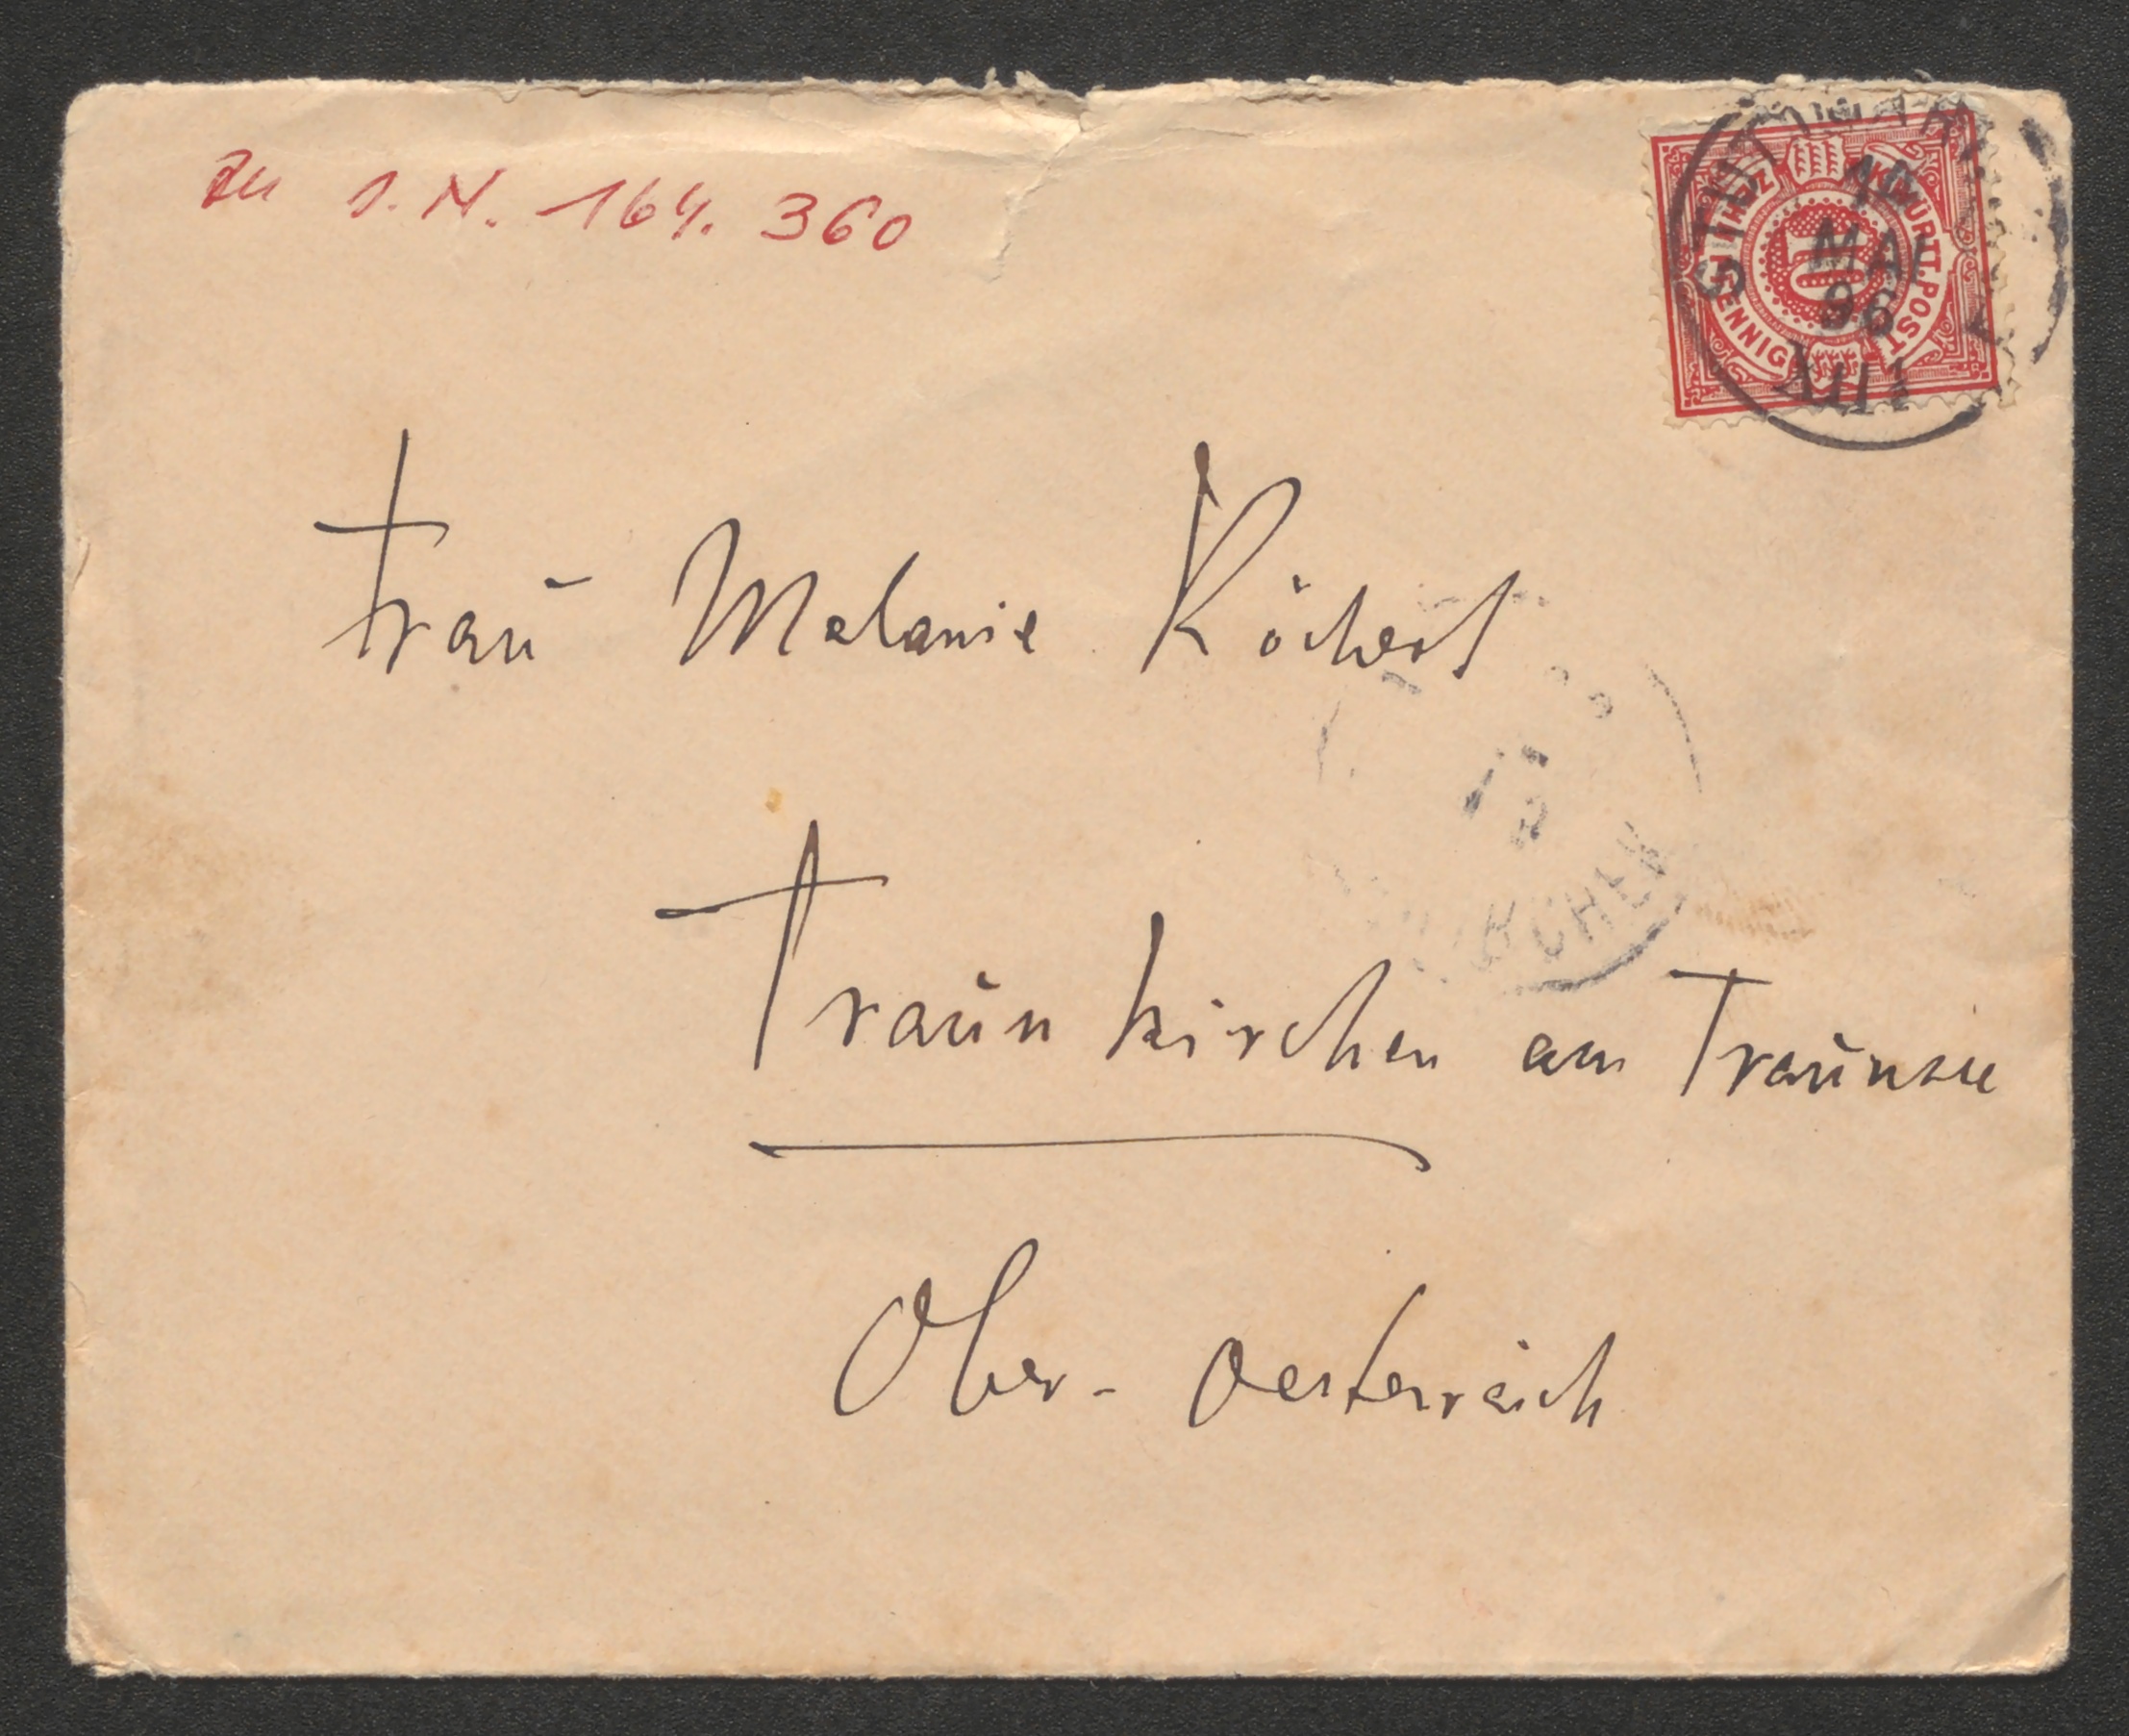 zu I.N. 164.360
K. WÜRT. POST
10
PFENNIG
STUTTGART
MAI
96
Frau Melanie Köchert
KIRCHEN
Traunkirchen am Traunsee
Ober-Oesterreich